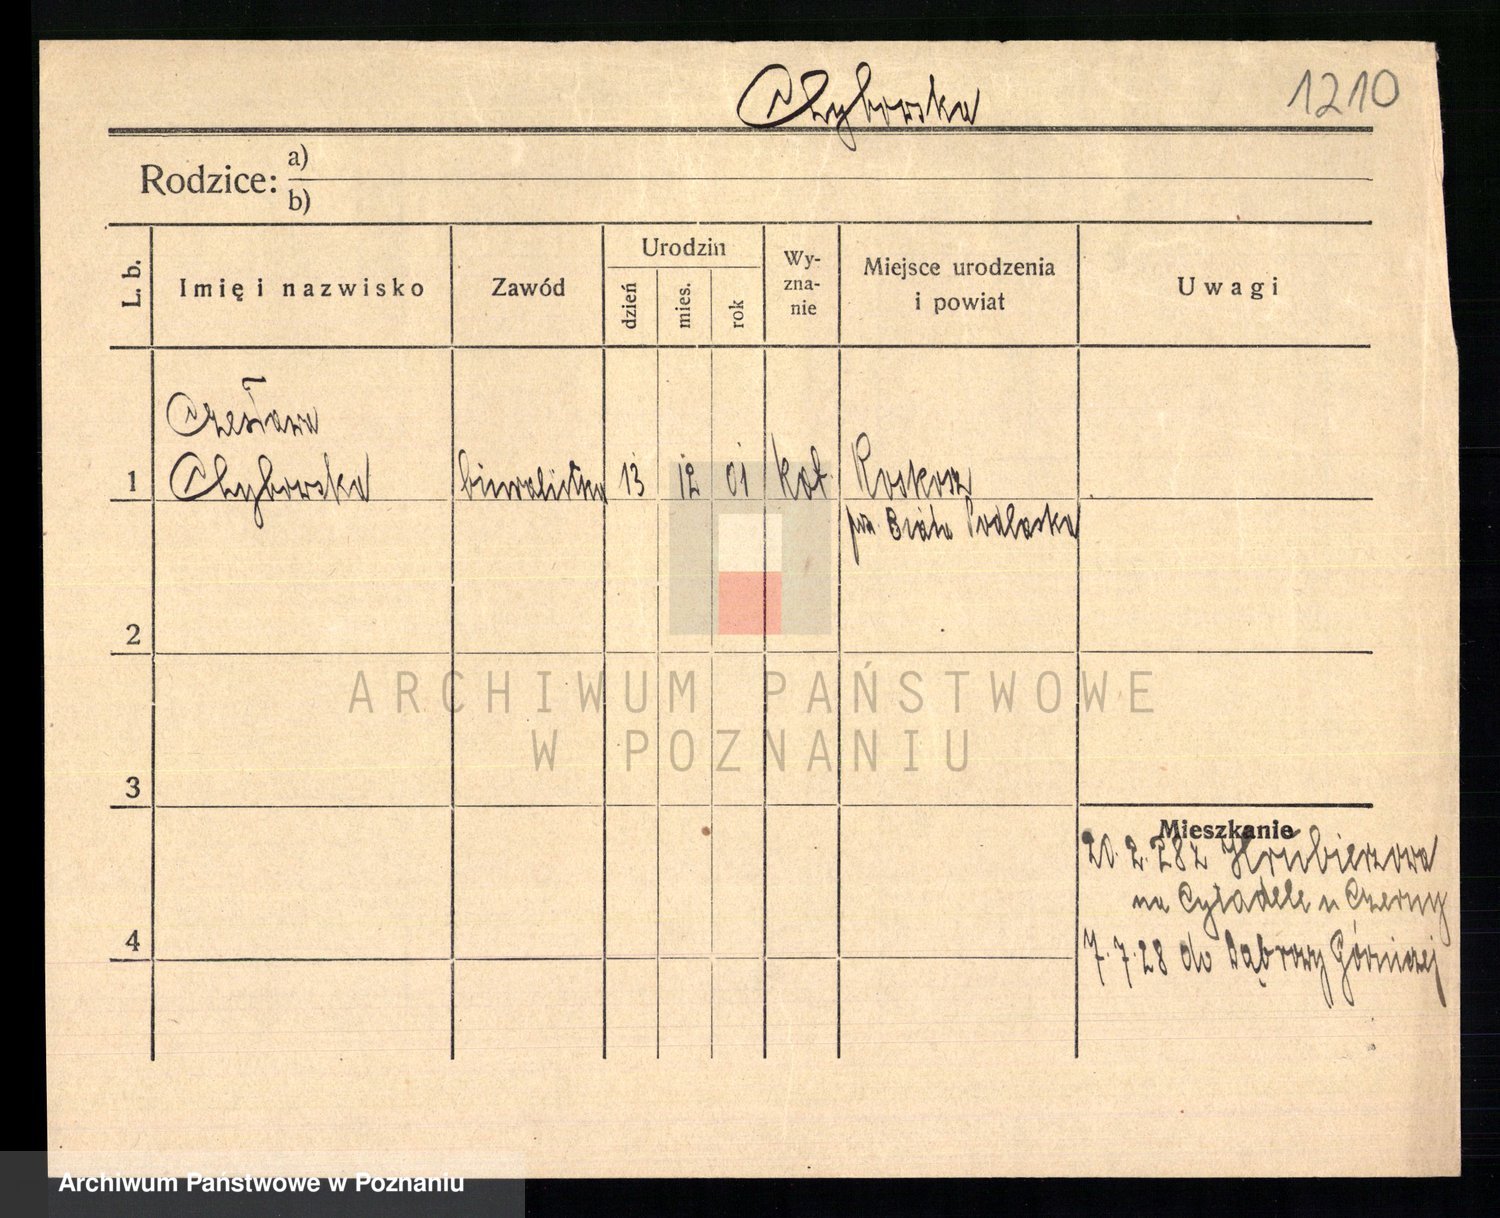 Chyborska
1210
Rodzice:
a)
b)
L. b.
Imię i nazwisko
Zawód
Urodzin
dzień
mies.
rok
Wy-
zna-
nie
Miejsce urodzenia
i powiat
Uwagi
Czesława
1 Chyborska biuralistka 13 12 01 kat Roskosz
pow. Biała Podlaska
2
3
Mieszkanie
20.2.28 z Hrubieszowa
na Cytadele u Czerny
4
7.7.28 do Dąbrowy Górniczej
ARCHIWUM PAŃSTWOWE
W POZNANIU
Archiwum Państwowe w Poznaniu